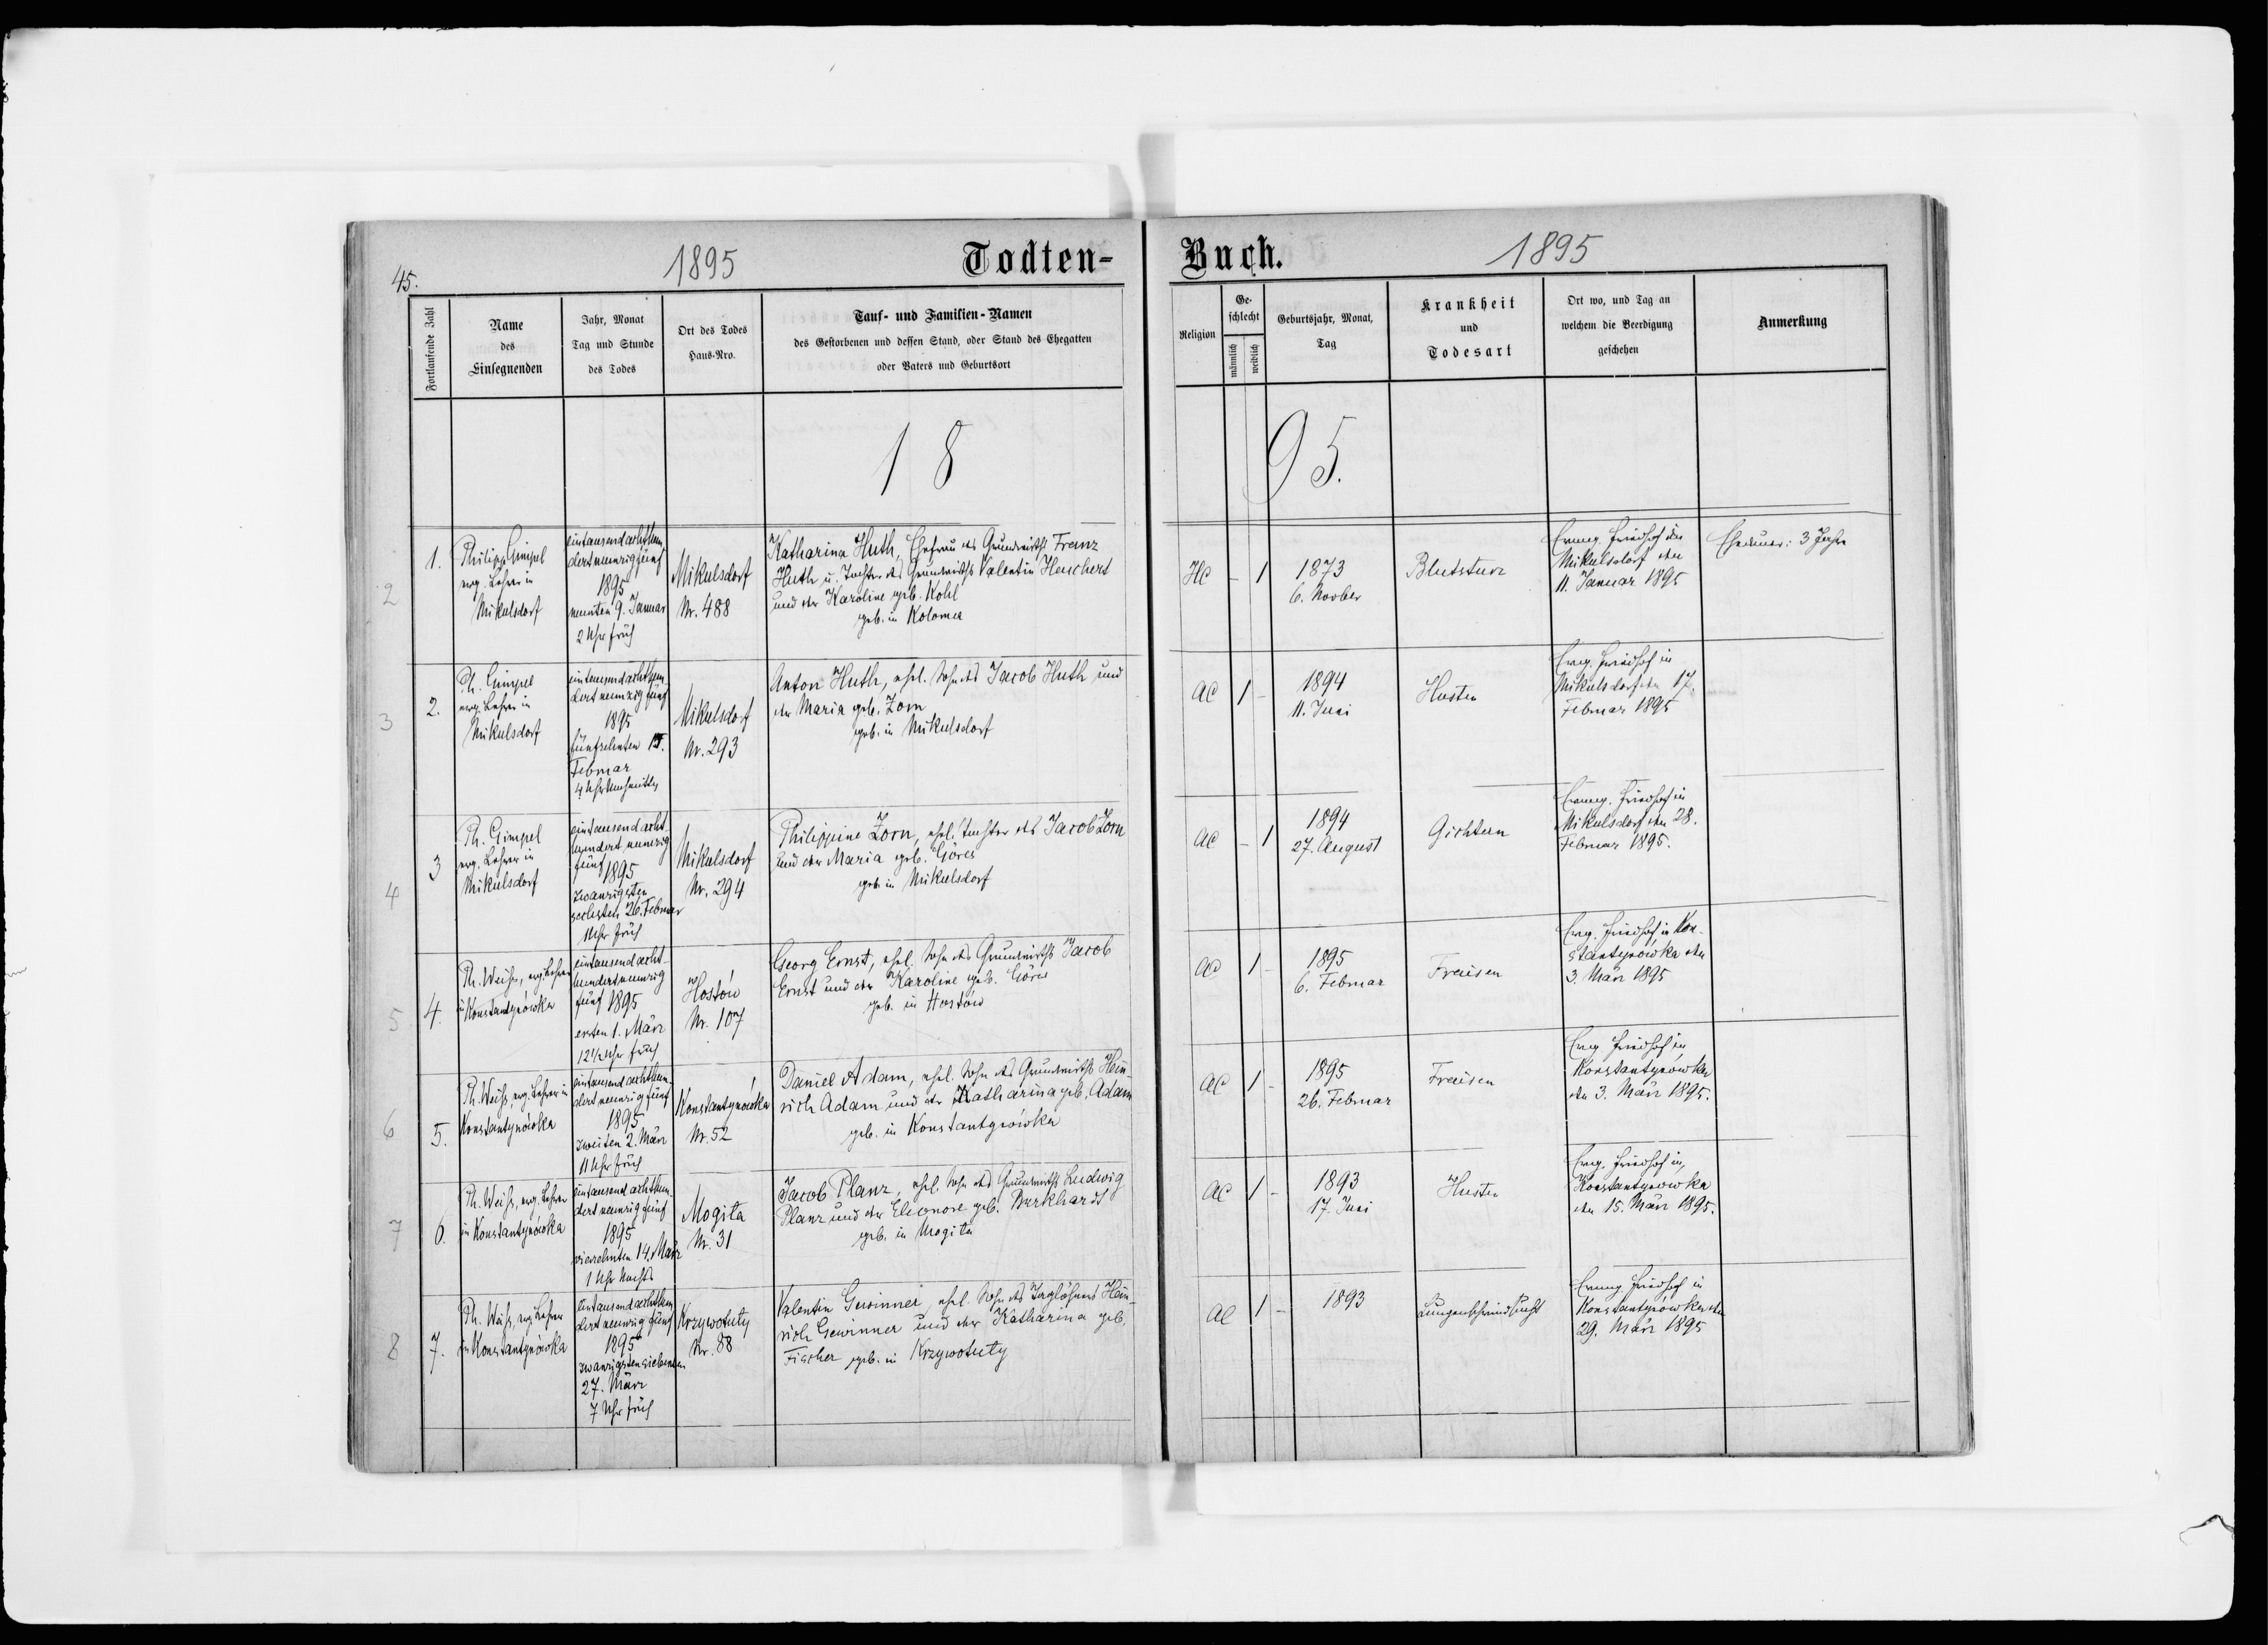 45.
1895
Todten-
Buch.
1895
Fortlaufende Zahl
Name
des
Einsegnenden
Jahr, Monat
Tag und Stunde
des Todes
Ort des Todes
Haus-Nro.
Tauf- und Familien-Namen
des Gestorbenen und dessen Stand, oder Stand des Ehegatten
oder Vaters und Geburtsort
Religion
Ge-
schlecht
männlich
weiblich
Geburtsjahr, Monat,
Tag
Krankheit
und
Todesart
Ort wo, und Tag an
welchem die Beerdigung
geschehen
Anmerkung
18
95.
2
1.
Philipp Gimpel
evg. Lehrer in
Mikulsdorf
eintausendachthun
dertneunzigfünf
1895
neunten 9. Januar
2 Uhr früh
Mikulsdorf
Nr. 488
Katharina Huth, Ehefrau des Grundwirths Franz
Huth u. Tochter des Grundwirths Valentin Huschert
und der Karoline geb. Kohl
geb. in Kolomea
HC
- 1
1873
6. Novber
Blutsturz
Evang. Friedhof in
Mikulsdorf den
11. Januar 1895
Ehedauer: 3 Jahre
3
2.
Ph. Gimpel
evg. Lehrer in
Mikulsdorf
eintausendachthun
dertneunzigfünf
1895
fünfzehnten 15.
Februar
4 Uhr Nachmittg
Mikulsdorf
Nr. 293
Anton Huth, ehel. Sohn des Jacob Huth und
der Maria geb. Zorn
geb. in Mikulsdorf
AC
1 -
1894
11. Juni
Husten
Evg. Friedhof in
Mikulsdorf den 17.
Februar 1895
4
3
Ph. Gimpel
evg. Lehrer in
Mikulsdorf
eintausendacht-
hundert neunzig
fünf 1895
zwanzigsten
sechsten 26. Februar
1 Uhr früh
Mikulsdorf
Nr. 294
Philippine Zorn, ehel. Tochter des Jacob Zorn
und der Maria geb. Göres
geb. in Mikulsdorf
AC
- 1
1894
27. August
Gichtern
Evang. Friedhof in
Mikulsdorf den 28.
Februar 1895.
5
4.
Ph. Weihs, evg. Lehrer
in Konstantynówka
eintausendacht-
hundertneunzig
fünf 1895
ersten 1. März
12½ Uhr früh
Hostów
Nr. 107
Georg Ernst, ehel. Sohn des Grundwirths Jacob
Ernst und der Karoline geb. Göres
geb. in Hostów
AC
1 -
1895
6. Februar
Fraisen
Evg. Friedhof in Kon-
stantynówka den
3. März 1895
6
5.
Ph. Weihs, evg. Lehrer in
Konstantynówka
eintausendachthun-
dertneunzigfünf
1895
zweiten 2. März
11 Uhr früh
Konstantynówka
Nr. 52
Daniel Adam, ehel. Sohn des Grundwirths Hein-
rich Adam und der Katharina geb. Adam
geb. in Konstantynówka
AC
1 -
1895
26. Februar
Fraisen
Evg Friedhof in
Konstantynówka
den 3. März 1895.
7
6.
Ph. Weihs, evg. Lehrer
in Konstantynówka
eintausendachthun-
dertneunzigfünf
1895
vierzehnten 14. März
1 Uhr Nachts
Mogita
Nr. 31
Jacob Planz, ehel. Sohn des Grundwirths Ludwig
Planz und der Eleonore geb. Burkhardt
geb. in Mogita
AC
1 -
1893
17. Juni
Husten
Evg. Friedhof in
Konstantynowka
den 15. März 1895.
8
7.
Ph. Weihs, evg Lehrer
in Konstantynówka
eintausendachthun
dertneunzigfünf
1895
zwanzigstensiebenten
27. März
7 Uhr früh
Krzywotuty
Nr. 88
Valentin Gewinner, ehel. Sohn des Taglöhners Hein-
rich Gewinner und der Katharina geb.
Fischer geb. in Krzywotuty
AC
1 -
1893
Lungenschwindsucht
Evang. Friedhof in
Konstantynówka den
29. März 1895